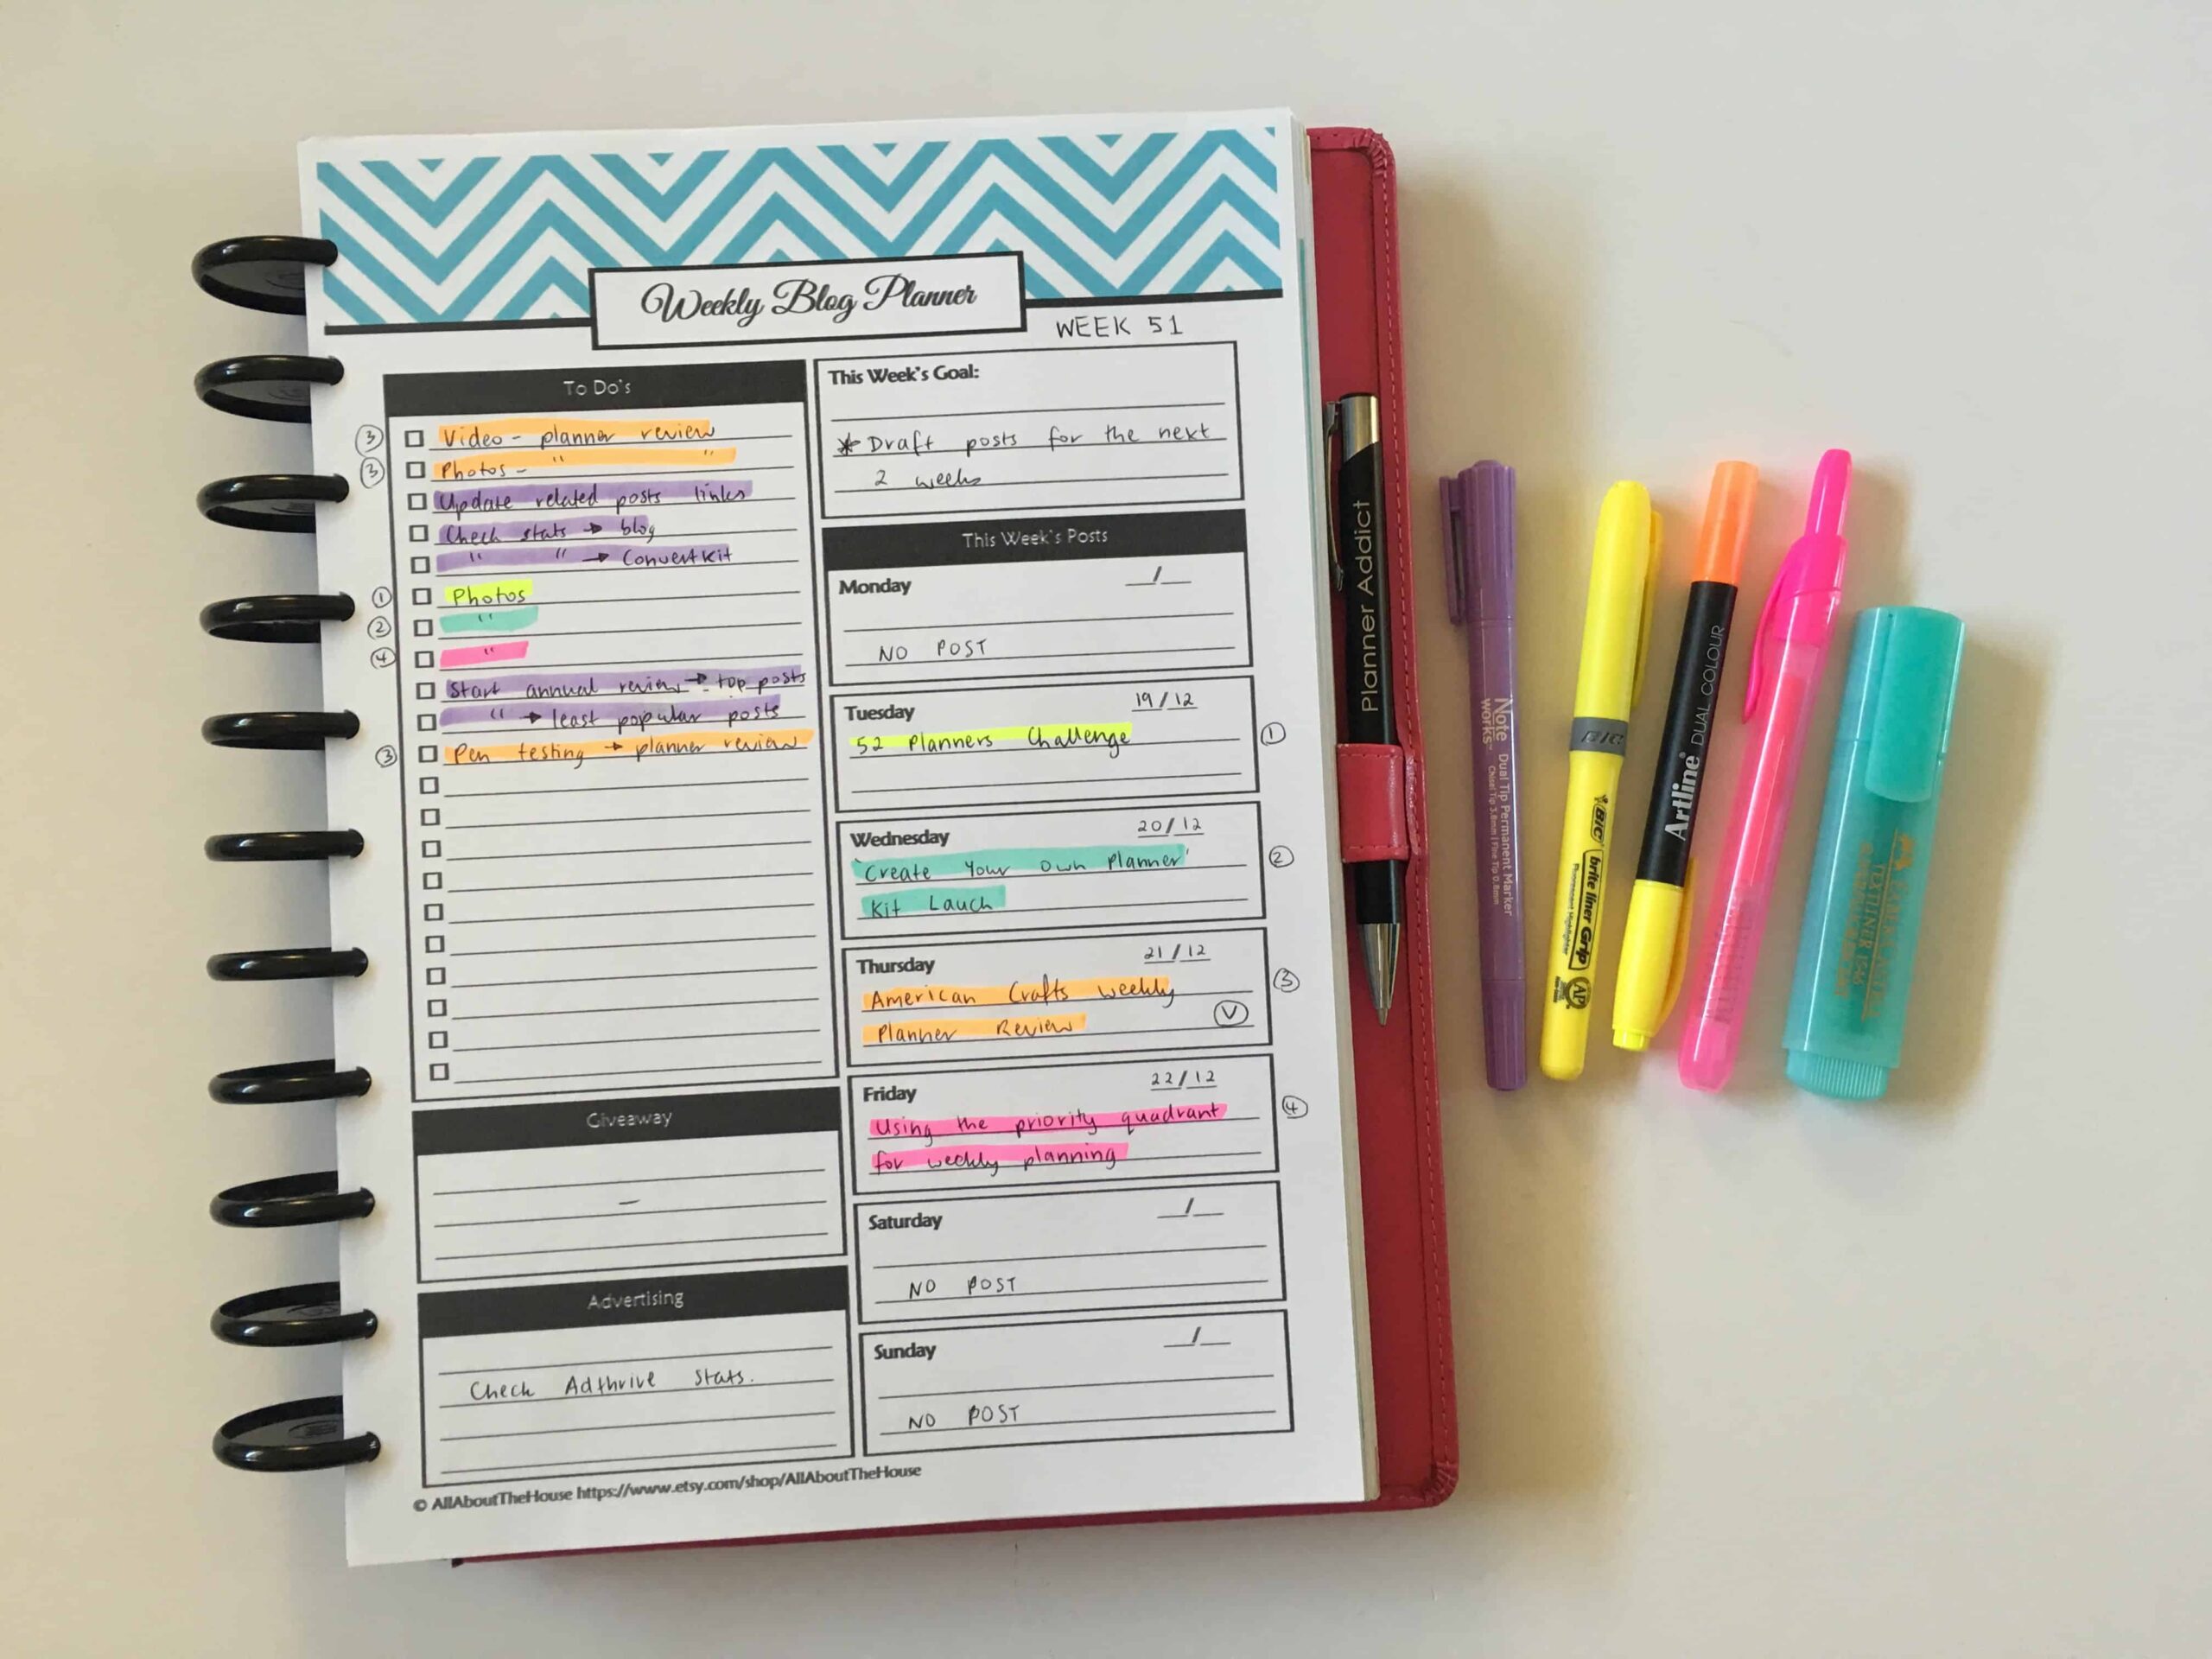 Weekly Blog Planner
WEEK 51
To Do's
③ Video - planner review
③ Photos - " "
Update related posts links
Check stats → blog
" " → ConvertKit
① Photos
② "
④ "
Start annual review → top posts
" → least popular posts
③ Pen testing → planner review
Giveaway
-
Advertising
Check Adthrive stats.
This Week's Goal:
* Draft posts for the next
2 weeks
This Week's Posts
Monday __/__
NO POST
Tuesday 19/12
52 Planners Challenge ①
Wednesday 20/12
'Create Your Own Planner' ②
Kit Lauch
Thursday 21/12
American Crafts weekly ③
Planner Review Ⓥ
Friday 22/12
Using the priority quadrant ④
for weekly planning
Saturday __/__
NO POST
Sunday __/__
NO POST
© AllAboutTheHouse https://www.etsy.com/shop/AllAboutTheHouse
Planner Addict
Note works™ Dual Tip Permanent Marker
Chisel Tip 3.6mm | Fine Tip 0.8mm
BIC
BIC brite liner Grip
Fluorescent Highlighter
AP
Artline® DUAL COLOUR
TEXTLINER 1546